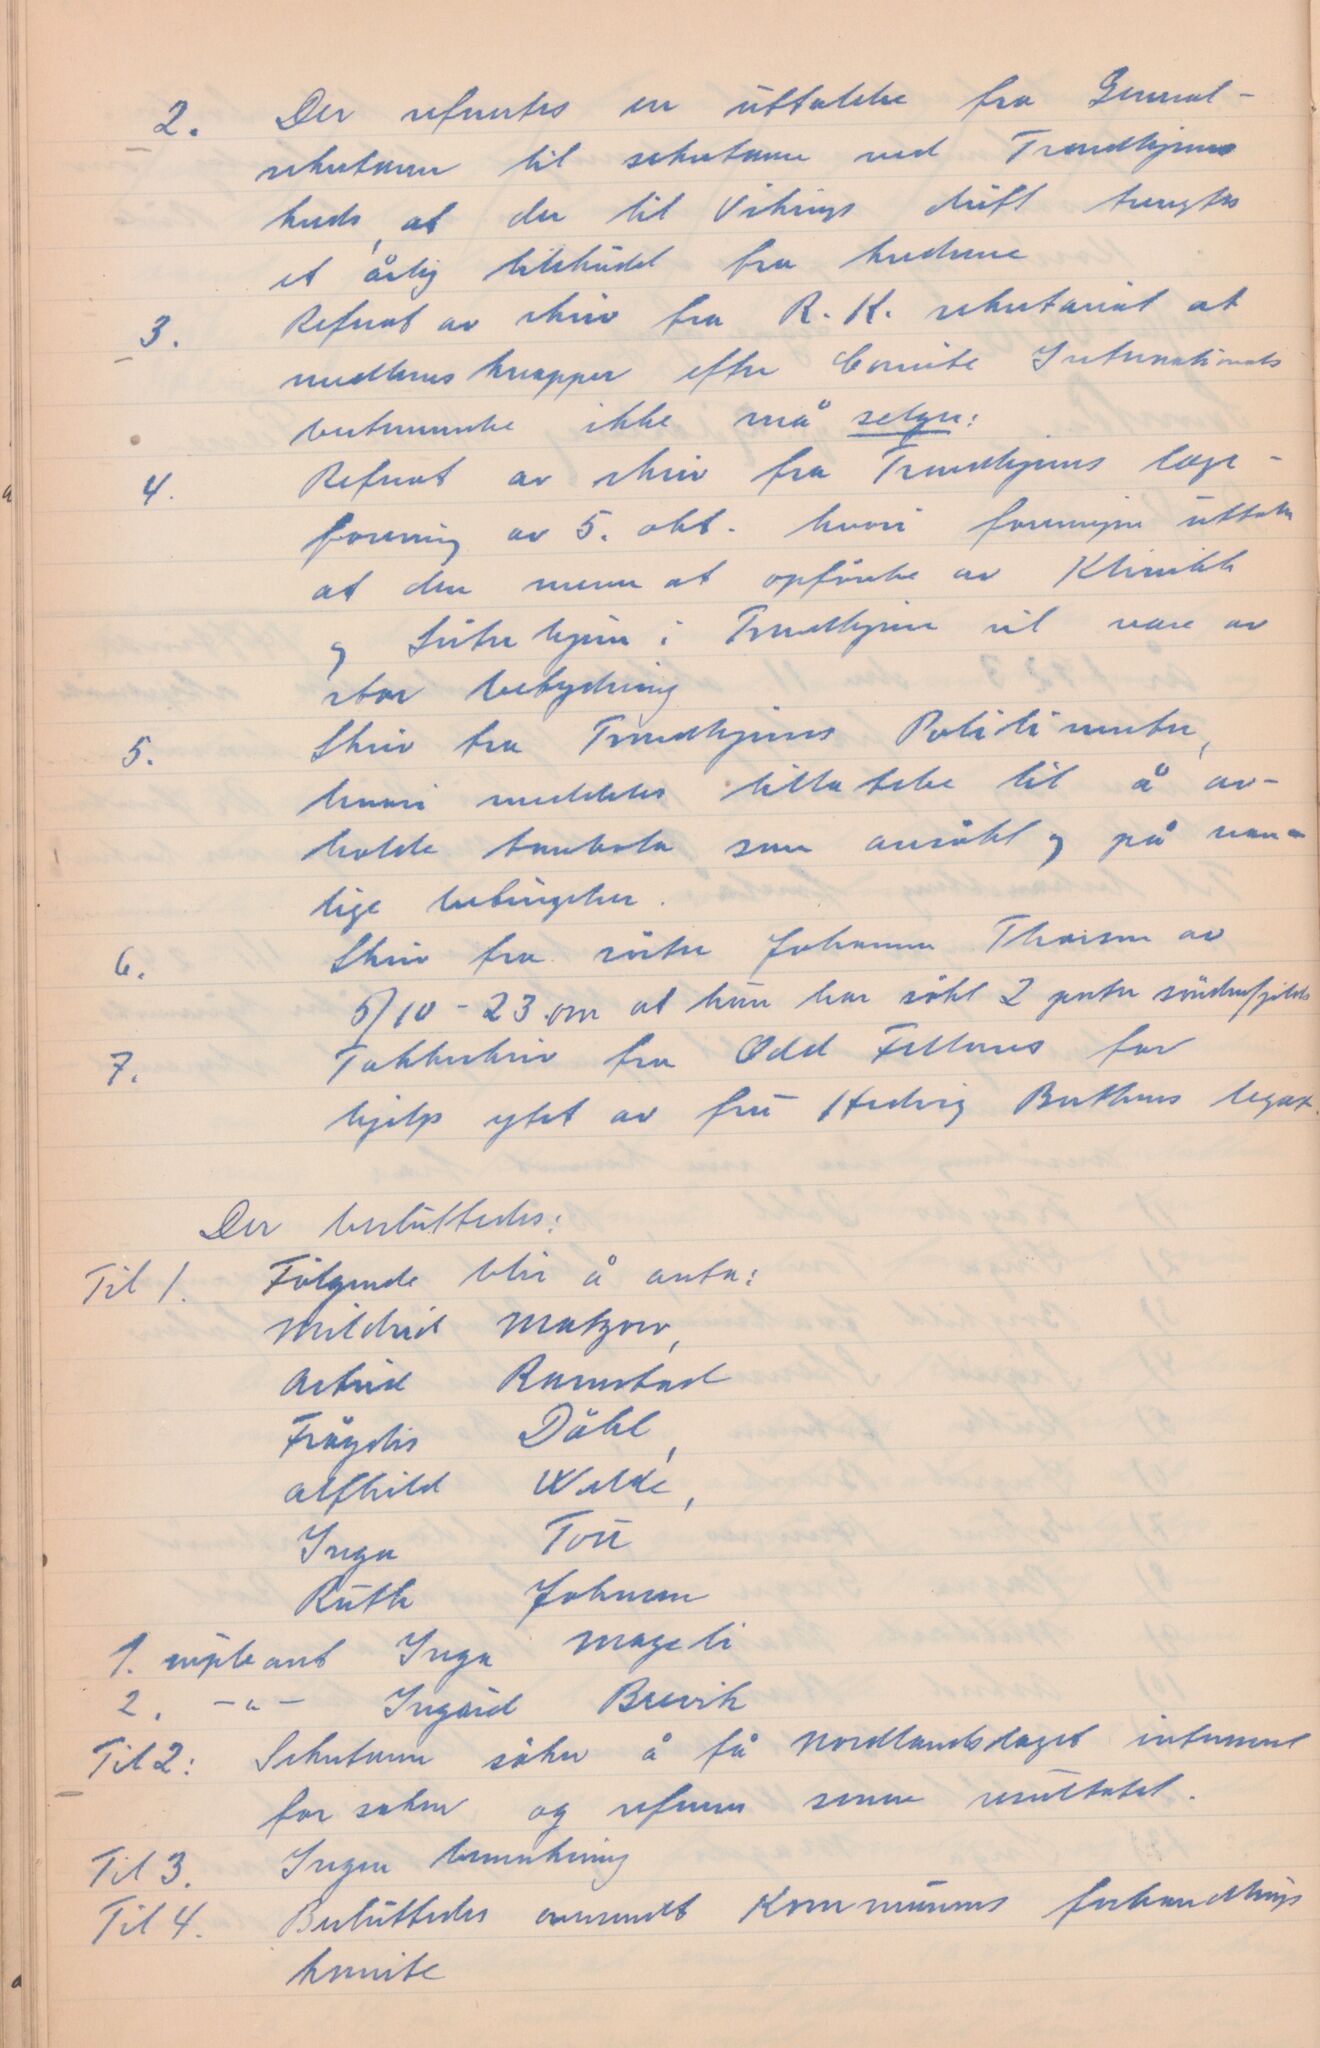 2. Der refertes en uttalelse fra General-
sekretæren til sekretæren ved Trondhjems
kreds, at der til Vikings drift trengtes
et årlig tilskudd fra kredsene
3. Referat av skriv fra R. K. sekretariat at
medlemsknapper efter Comite Internationals
bestemmelse ikke må selges:
4. Referat av skriv fra Trondhjems læge-
forening av 5. okt. hvori foreningen uttaler
at den mener at opførelse av Klinikk
og Søsterhjem i Trondhjem vil være av
stor betydning
5. Skriv fra Trondhjems Politimester,
hvori meddeles tillatelse til å av-
holde tombola som ansøkt og på van-
lige betingelser.
6. Skriv fra søster Johanne Thorsen av
5/10-23 om at hun har søkt 2 poster søndenfjelds
7. Takkeskriv fra Odd Fellows for
hjelp ytet av fru Hedvig Buthus legat.
Der besluttedes:
Til 1. Følgende blir å anta:
Mildrid Matzow,
Astrid Ramstad
Frøydis Døhl,
Alfhild Welde,
Inga Torr
Ruth Johnsen
1. supleant Inga Mogeli
2. -"- Ingrid Brevik
Til 2: Sekretæren søker å få Nordlandslaget interessert
for saken og referer senere resultatet.
Til 3. Ingen bemerkning
Til 4. Besluttedes oversendt Kommunens forhandlings
komite